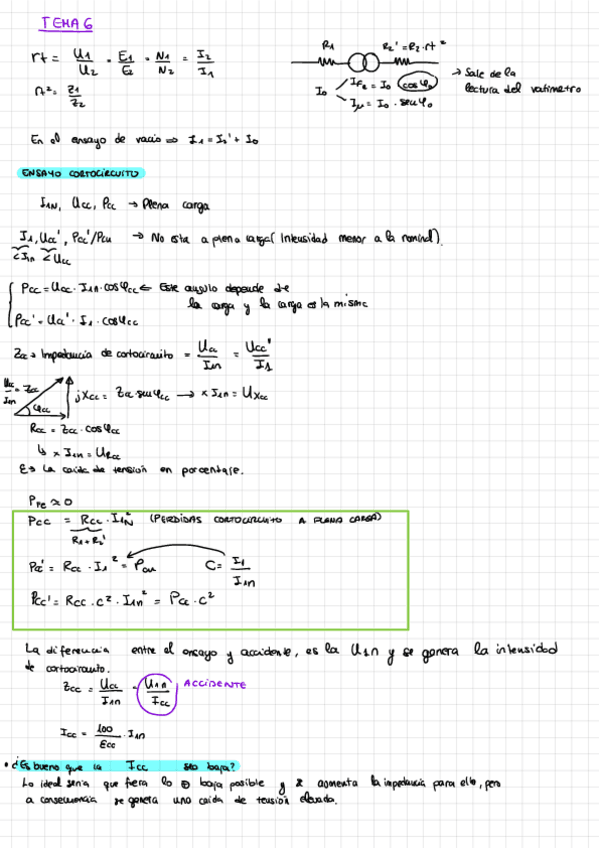 TEMA 6
rt = U1/U2 = E1/E2 = N1/N2 = I2/I1
rt² = Z1/Z2
R1 R2' = R2·rt²
I0 IFe = I0 cosφ0 → Sale de la
Iμ = I0 · senφ0 lectura del vatimetro
En el ensayo de vacio ⇒ I1 = I2' + I0
ENSAYO CORTOCIRCUITO
I1N, Ucc, Pcc → Plena carga
I1, Ucc', Pcc'/Pcu → No esta a plena carga (Intensidad menor a la nominal).
<I1n <Ucc
Pcc = Ucc · I1n · cosφcc ← Este angulo depende de
la carga y la carga es la misma
Pcc' = Ucc' · I1 · cosφcc
Zcc → Impedancia de cortocircuito = Ucc/I1n = Ucc'/I1
Ucc/I1n = Zcc
jXcc = Zcc senφcc → × I1n = UXcc
φcc
Rcc = Zcc · cosφcc
↳ × I1n = URcc
E → La caida de tension en porcentaje.
PFe ≈ 0
Pcc = Rcc · I1N² (PERDIDAS CORTOCIRCUITO A PLENA CARGA)
R1 + R2'
Pcc' = Rcc · I1² = Pcu C = I1/I1n
Pcc' = Rcc · c² · I1n² = Pcc · c²
La diferencia entre el ensayo y accidente, es la U1n y se genera la intensidad
de cortocircuito.
Zcc = Ucc/I1n = U1n/Icc ACCIDENTE
Icc = 100/Ecc · I1n
• ¿Es bueno que la Icc sea baja?
Lo ideal seria que fuera lo + baja posible y aumenta la impedancia para ello, pero
a consecuencia se genera una caida de tension elevada.